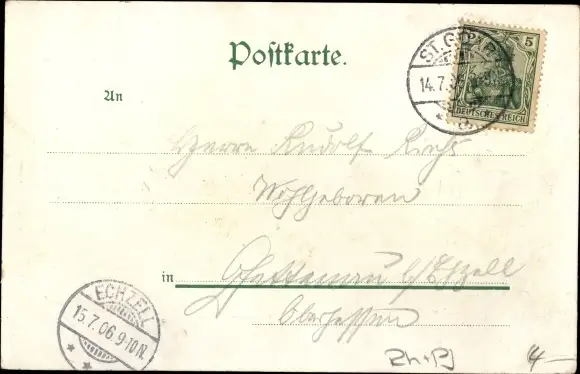 Postkarte.
ST. GOAR
14.7.
5
DEUTSCHES REICH
An
Herrn Rudolf
Wohlgeboren
in b/Echzell
Oberhessen
ECHZELL
15.7.06 9-10N.
4-